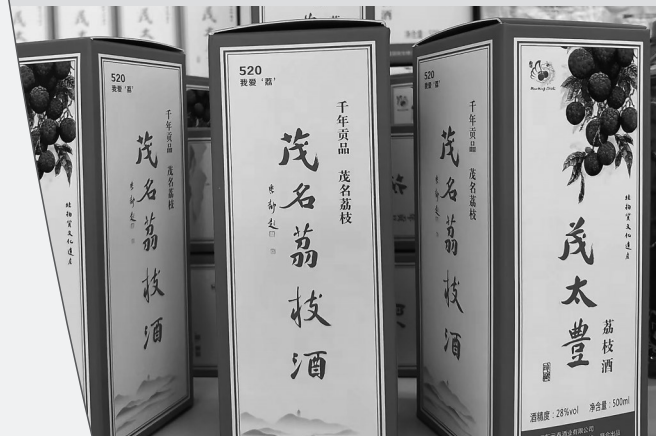 520
我爱‘荔’
千年贡品 茂名荔枝
茂名荔枝酒
520
我爱‘荔’
千年贡品 茂名荔枝
茂名荔枝酒
520
我爱‘荔’
千年贡品 茂名荔枝
茂名荔枝酒
非物质文化遗产
茂太豊
荔枝酒
酒精度：28%vol 净含量：500ml